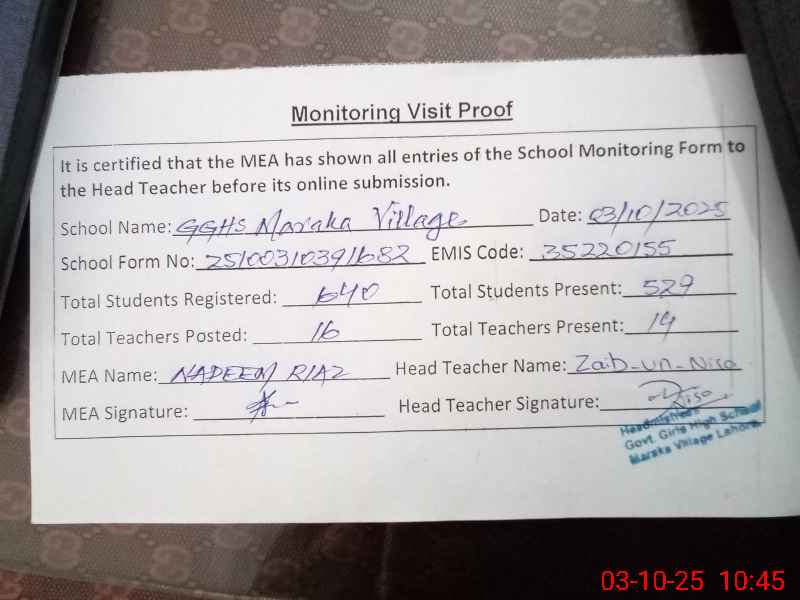 Monitoring Visit Proof
It is certified that the MEA has shown all entries of the School Monitoring Form to
the Head Teacher before its online submission.
School Name: GGHS Maraka Village Date: 03/10/2025
School Form No: 25100310391682 EMIS Code: 35220155
Total Students Registered: 640 Total Students Present: 529
Total Teachers Posted: 16 Total Teachers Present: 14
MEA Name: NADEEM RIAZ Head Teacher Name: Zaib-un-Nisa
MEA Signature: Head Teacher Signature:
Headmistress
Govt. Girls High School
Maraka Village Lahore
03-10-25 10:45